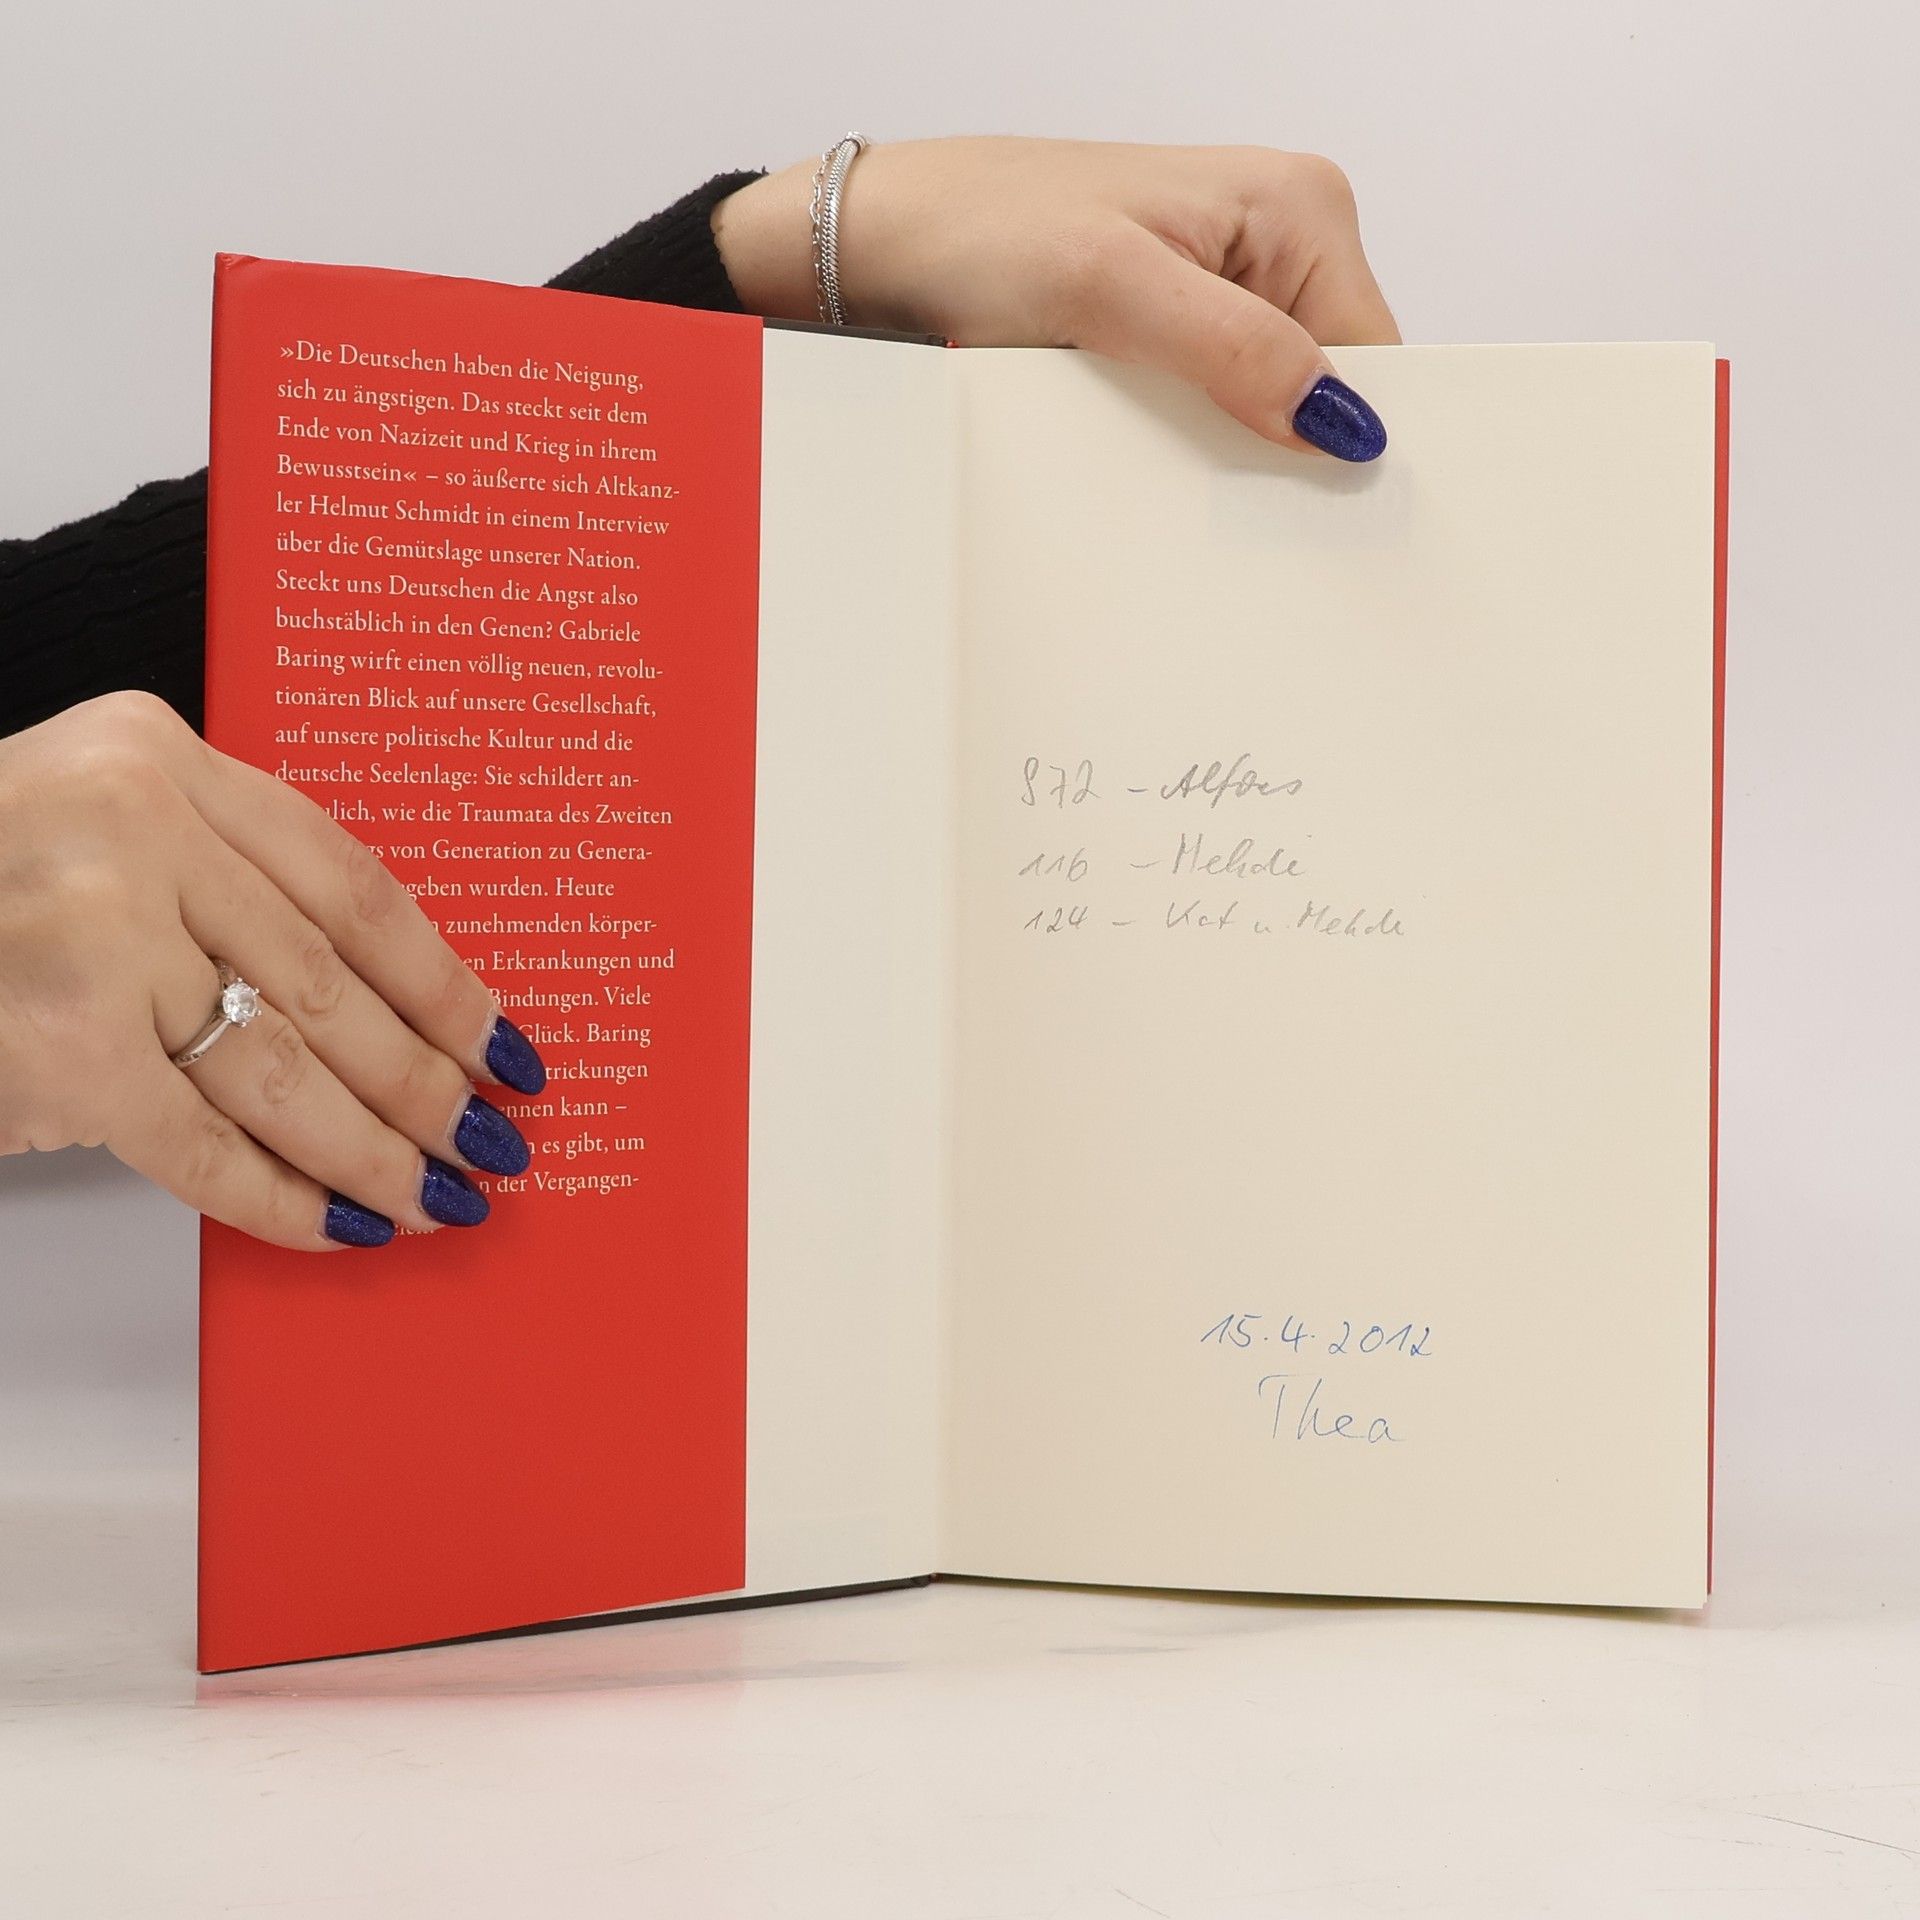 »Die Deutschen haben die Neigung,
sich zu ängstigen. Das steckt seit dem
Ende von Nazizeit und Krieg in ihrem
Bewusstsein« – so äußerte sich Altkanz-
ler Helmut Schmidt in einem Interview
über die Gemütslage unserer Nation.
Steckt uns Deutschen die Angst also
buchstäblich in den Genen? Gabriele
Baring wirft einen völlig neuen, revolu-
tionären Blick auf unsere Gesellschaft,
auf unsere politische Kultur und die
deutsche Seelenlage: Sie schildert an-
wie die Traumata des Zweiten
von Generation zu Genera-
wurden. Heute
zunehmenden körper-
Erkrankungen und
Bindungen. Viele
Glück. Baring
kann –
es gibt, um
der Vergangen-
- Alfons
116 - Mehdi
124 - Kat u. Mehdi
15.4.2012
Thea